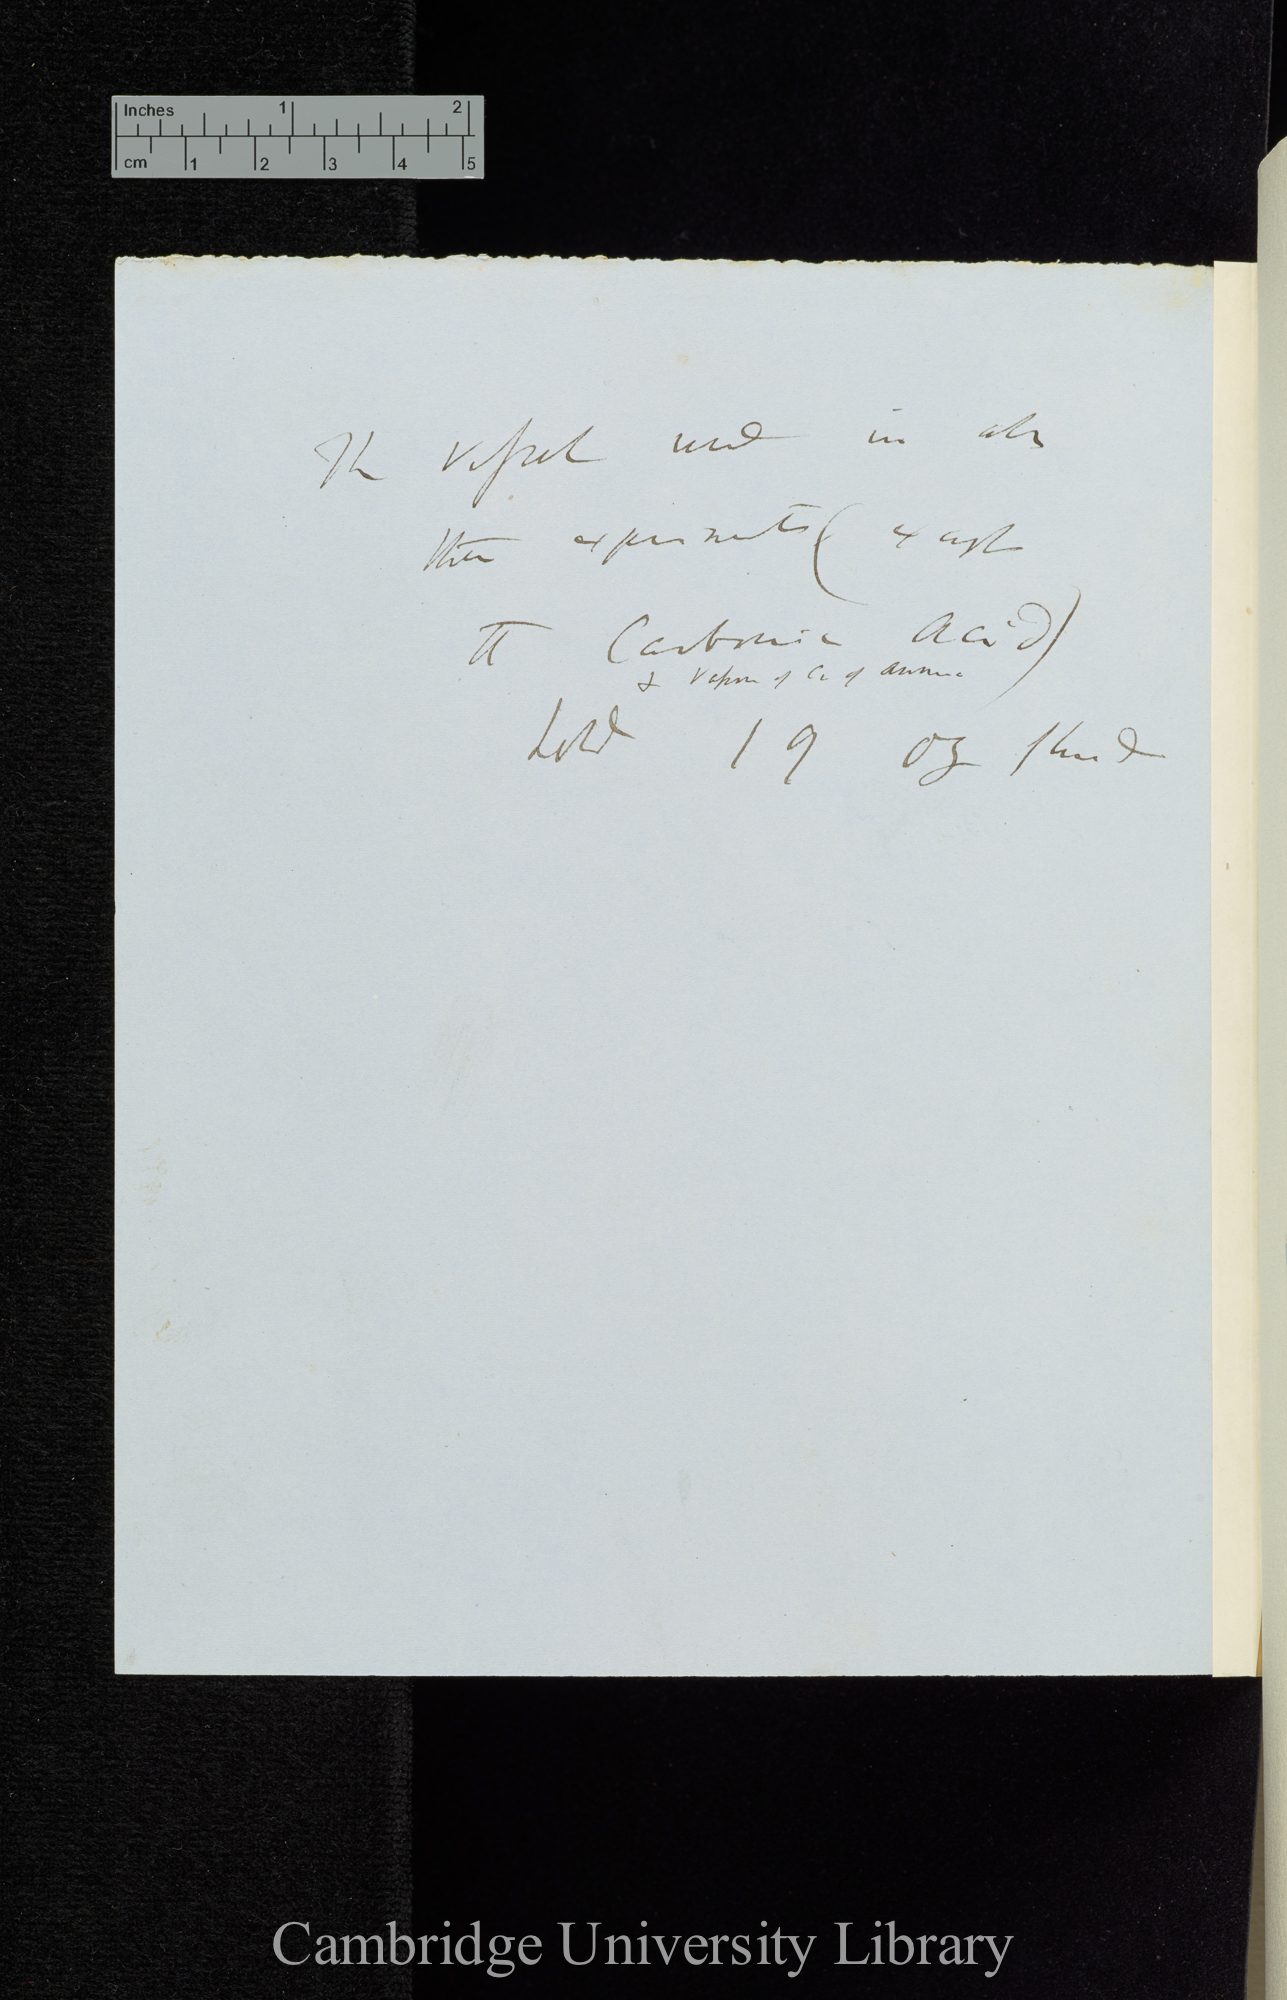 Inches 1 2
cm 1 2 3 4 5
The vessel used in all
these experiments (except
the Carbonic Acid)
& vapour of C. of Ammonia
hold 19 oz fluid
Cambridge University Library